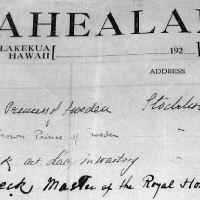 AHEALA
LAKEKUA
HAWAII [ 192
ADDRESS
Princess of Sweden Stockhol
Crown Prince of Sweden
act Lady in waiting
eck Master of the Royal Ho